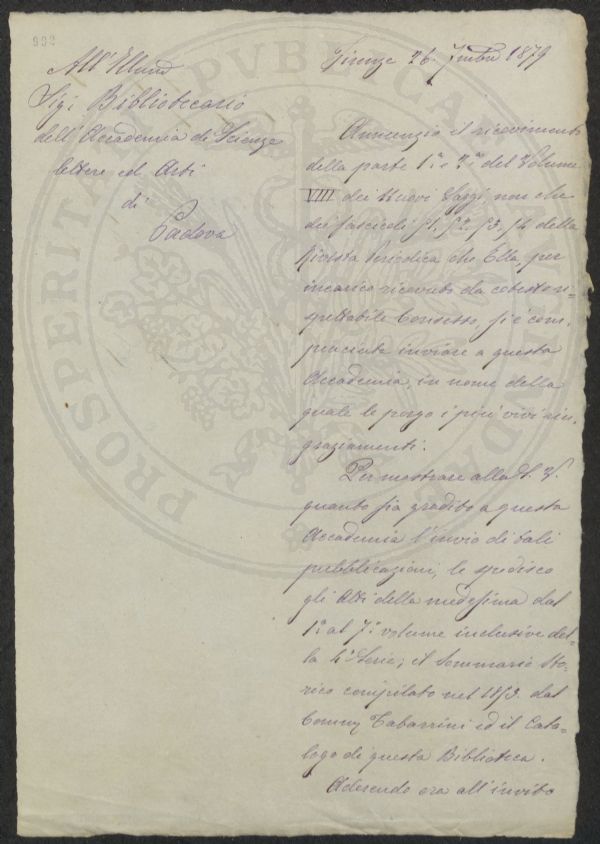 992
Firenze 26. 7mbre 1879
All'Illmo
Sigr Bibliotecario
dell'Accademia di Scienze
lettere ed Arti
di
Padova
Annunzio il ricevimento
della parte 1a e 2a del Volume
VIII dei Nuovi Saggi, non che
dei fascicoli 51. 52. 53. 54 della
Rivista Periodica che Ella per
incarico ricevuto da codesto ri-
spettabile Consesso si è com-
piaciuta inviare a questa
Accademia, in nome della
quale le porgo i più vivi rin-
graziamenti.
Per mostrare alla S. V.
quanto sia gradito a questa
Accademia l'invio di tali
pubblicazioni, le spedisco
gli Atti della medesima dal
1o al 7o volume inclusive del-
la 4a Serie; il Sommario Sto-
rico compilato nel 1859. dal
Tabarrini ed il Cata-
logo di questa Biblioteca.
Aderendo ora all'invito
PROSPERITATI PUBLICAE AUGENDAE